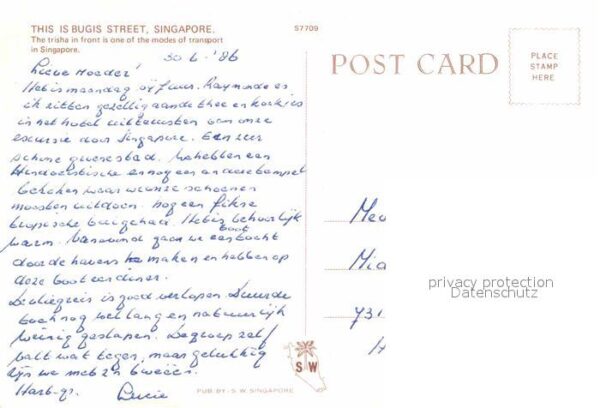 THIS IS BUGIS STREET, SINGAPORE.
The trisha in front is one of the modes of transport
in Singapore.
S7709
POST CARD
PLACE
STAMP
HERE
30-6-'86
Lieve Moeder!
Het is maandag 5 uur. Raymonde en
ik zitten gezellig aan de thee en koekjes
in het hotel uit te rusten van onze
excursie door Singapore. Een zeer
schone groene stad. We hebben een
Hindoeïstische en nog een andere tempel
bekeken waar we onze schoenen
moesten uitdoen. Nog een fikse
tropische bui gehad. Het is behoorlijk
warm. Vanavond gaan we een boottocht
door de havens maken en hebben op
deze boot een diner.
De vliegreis is goed verlopen. Duurde
toch nog wel lang en natuurlijk
weinig geslapen. De groep zelf
valt wat tegen, maar gelukkig
zijn we met z'n tweeën.
Hart. gr. Lucie
Mev
Mia
731
H
privacy protection
Datenschutz
S W
PUB. BY: S.W. SINGAPORE